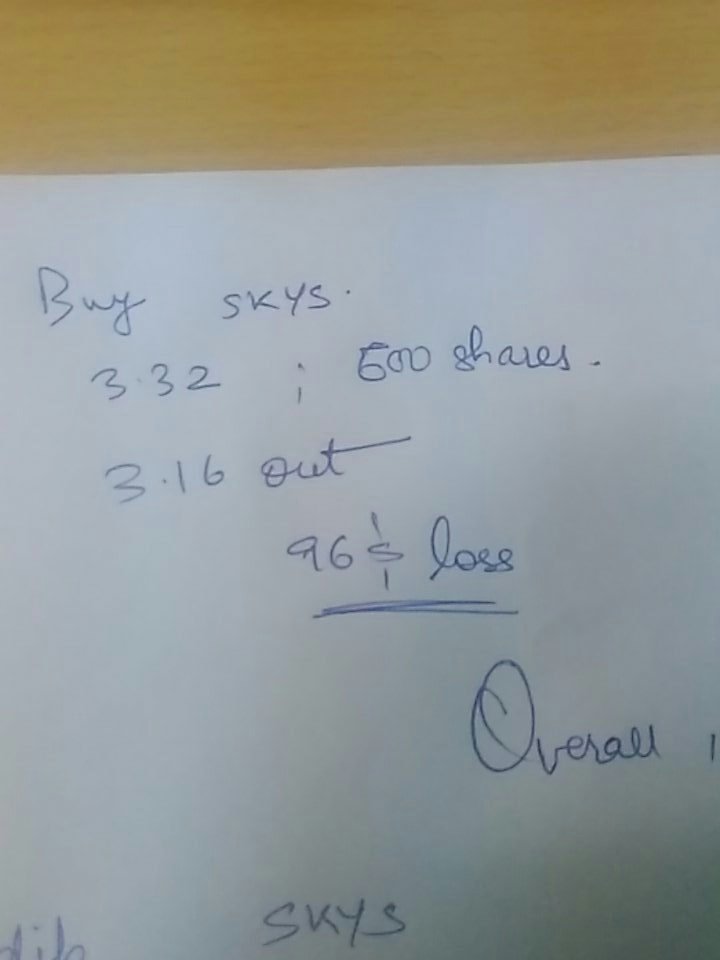 Buy SKYS.
3.32 ; 600 shares.
3.16 out
96$ loss
Overall
SKYS